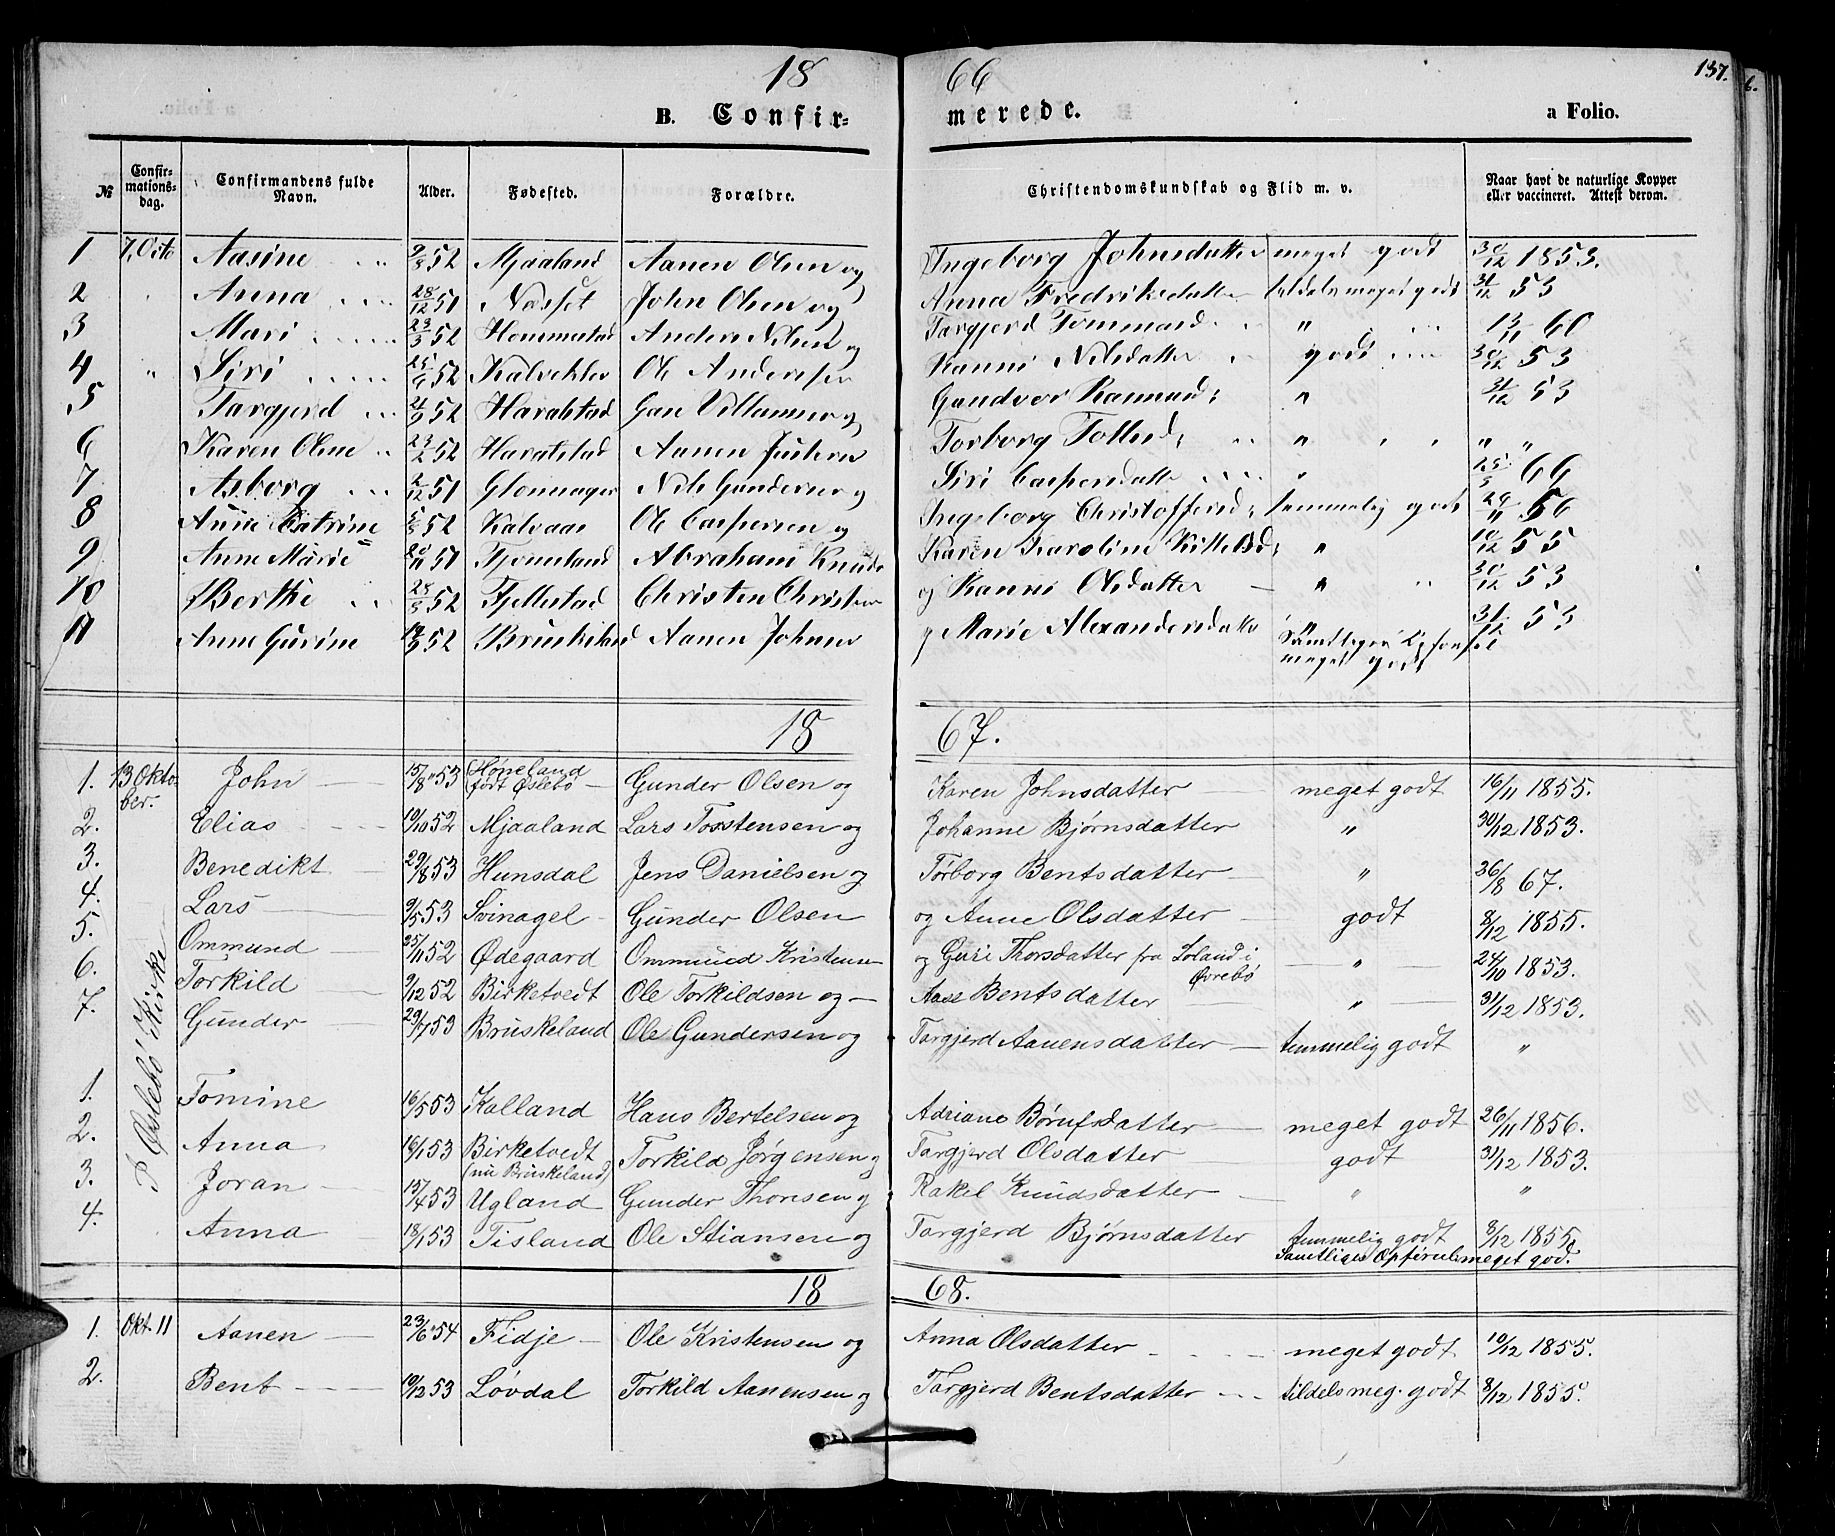 18 66 137.
B. Confir= merede. a Folio.
№ Confir-mations-dag. Confirmandens fulde Navn. Alder. Fødested. Forældre. Christendomskundskab og Flid m. v. Naar havt de naturlige Kopper eller vaccineret. Attest derom.
1 7, Octo Aasine 9/3 52 Mjaaland Aanen Olsen og Ingeborg Johnsdatter meget godt 30/12 1853.
2 " Anna 28/12 51 Næsset John Olsen og Anna Fredriksdatter tildels meget godt 31/12 53
3 Mari 23/3 52 Hommestad Anders Nilsen og Targjerd Tommasd. " 13/11 60
4 " Siri 52 Kalveklev Ole Andersen Kanni Nilsdatter godt 30/12 53
5 Targjerd 52 Haralstad Gunvor Raamund; " 31/12 53
6 Karen Oline 23/2 52 Haralstad Aanen Torborg " " "
7 Asborg 2/12 51 Nils Gundersen og Siri Caspersdatter " 66
8 Anne Catrine 52 Kalvaas Ole Caspersen og Ingeborg Christoffersd; temmelig godt 29/11 56
9 Anne Marie 20/11 51 Abraham Knuds Karen Karoline " 10/12 55
10 Berthe 52 Fjellestad Christen Christens og Kanni Olsdatter " 30/12 53
11 Anne Gurine 52 Bruskeland Aanen Johns og Marie Alexandersdatter " 31/12 53
meget godt
18 67.
1. 13 Okto-ber. John 15/8 53 Høneland født Øslebø Gunder Olsen og Karen Johnsdatter meget godt 16/11 1855.
2. Elias 10/10 52 Mjaaland Lars Torstensen og Johanne Bjørnsdatter " 30/12 1853.
3. Benedikt 29/8 53 Hunsdal Jens Danielsen og Torborg Bentsdatter " 36/8 67.
4. Lars 9/5 53 Svinagel Gunder Olsen og Anne Olsdatter godt 8/12 1855.
5. Ommund 25/11 52 Ødegaard Ommund Kristensen og Guri Thorsdatter fra Loland i Øvrebø " 24/10 1853.
6. Torkild 9/12 52 Birketvedt Ole Torkildsen og Aase Bentsdatter " 31/12 1853.
7. Gunder 29/7 53 Bruskeland Ole Gundersen og Targjerd Aanensdatter temmelig godt "
I Øslebø Kirke
1. Tomine 16/5 53 Kolland Hans Bertelsen og Adriane Børufsdatter meget godt 26/11 1856.
2. Anna 16/1 53 Birketvedt (nu Bruskeland) Torkild Jørgensen og Targjerd Olsdatter godt 31/12 1853.
3. Joran 13/4 53 Ugland Gunder Thorsen og Rakel Knudsdatter " "
4. Anna 18/1 53 Tisland Ole Stiansen og Targjerd Bjørnsdatter temmelig godt 8/12 1855
Samtliges Opførsel meget god.
18 68.
1. Okt. 11 Aanen 23/6 54 Fidje Ole Kristensen og Anna Olsdatter meget godt 10/12 1855.
2. Bent 19/12 53 Løvdal Torkild Aanensen og Targjerd Bentsdatter tildels meg. godt 8/12 1855.